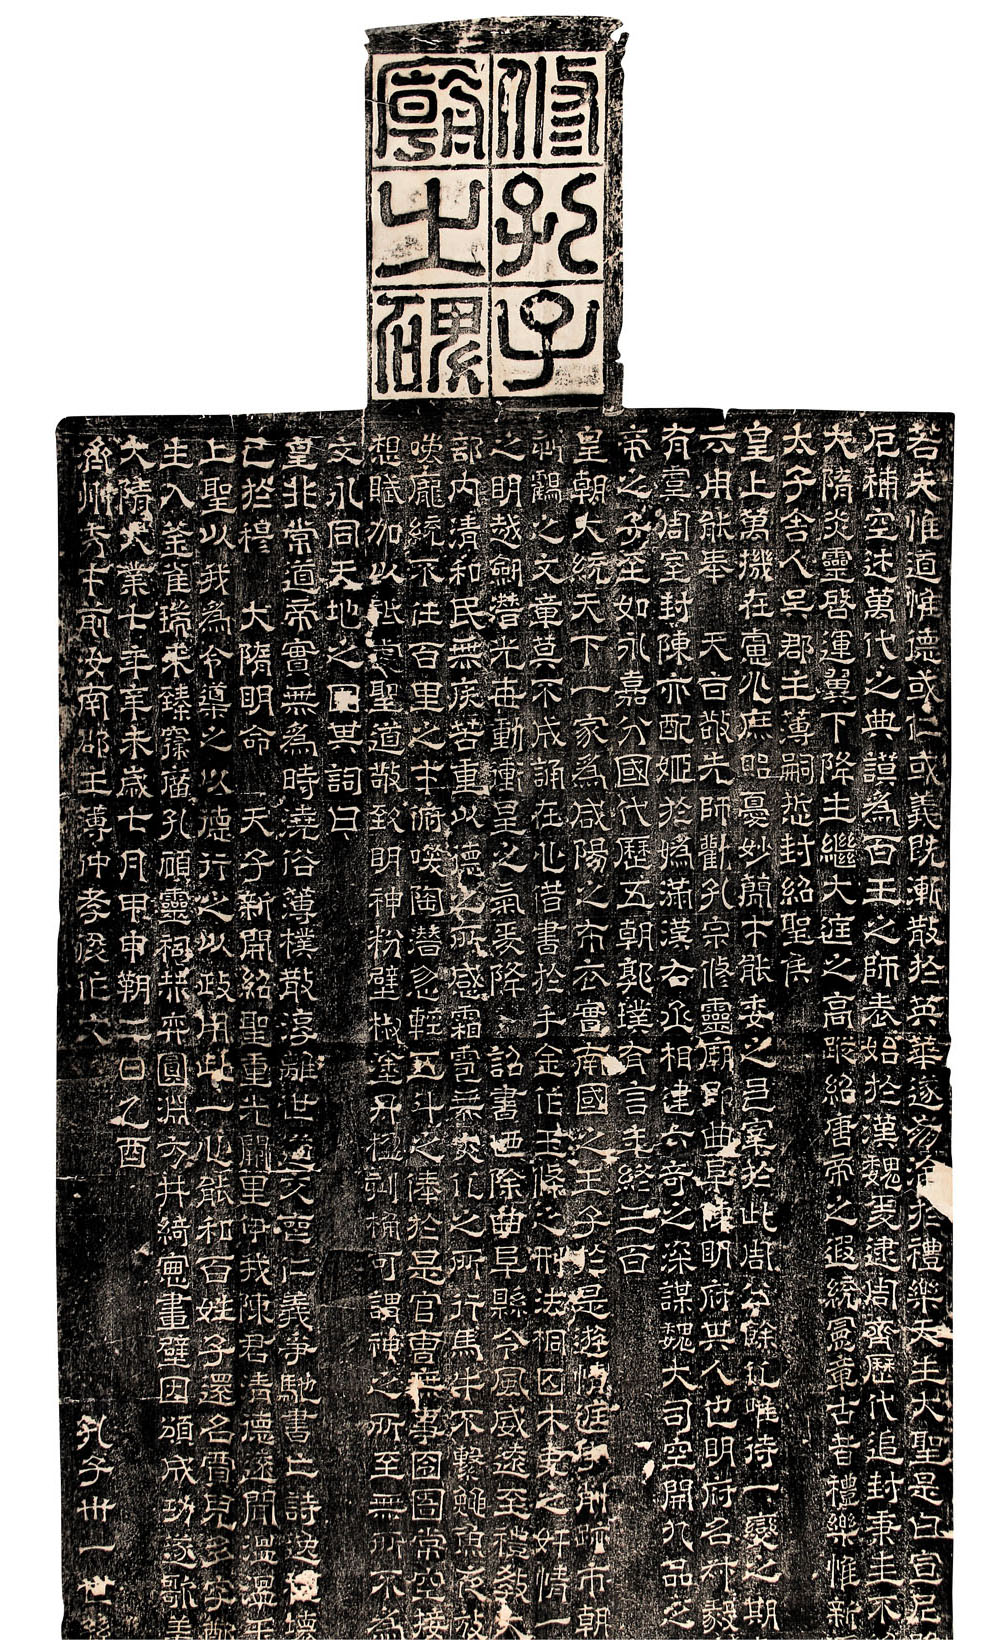 脩孔子
廟之碑
若夫惟道惟德或仁或義既漸散於英華遂 於禮樂天生大聖是曰宣尼
厄補空述萬代之典謨為百王之師表始於漢魏爰逮周齊歷代追封秉圭不
大隋炎靈啓運翼下降生繼大庭之高 紹唐帝之遐 憲章古昔禮樂惟新
太子舍人吳郡主薄嗣悊封紹聖侯
皇上萬機在慮兆庶 憂妙簡才能委之邑宰於此周公餘化唯待一變之期
云用能奉 天百敬先師勸孔宗脩靈廟即曲阜陳明府其人也明府名叔毅
有壹周室封陳亦配姬於媯滿漢右丞相建六奇之深謀魏大司空開九品之
帝之子至如永嘉分國代歷五朝郭璞有言年終三百
皇朝大統天下一家為咸陽之布衣實南國之王子於是遊情 削 市朝
之文章莫不成誦在心借書於手金作玉條之刑法桐囚木吏之奸情一
之明越劍 光 動衝星之氣爰降 詔書 除曲阜縣令風威遠至禮教
部內清和民無疾苦重以德之所感霜雹無災化之所行馬牛不繫蠅魚夜放
唉龐統不任百里之才俯唉陶潛忽輕五斗之俸於是官曹無事囹圄常空接
想賦加以祗 聖道敬致明神粉壁椒塗丹楹刻桷可謂神之所至無所不為
文永同天地之 其詞曰
皇非常道帝實無為時澆俗薄樸散淳離世 之文 仁義爭馳書上詩 壞
已於穆 大隋明命 天子新開紹聖重光闕里伊我陳君青德遠聞溫溫玉
上聖以我為令導之以德行之以政用此一心能和百姓子還名 兒多字
主入 雀瑞來臻 孔顧靈祠 弈圓淵方井綺窗畫壁因頌成功遂歌美
大隋大業七年辛未歲七月甲申朔二日乙酉
濟州秀才前汝南郡主薄仲孝俊作文 孔子卅一世